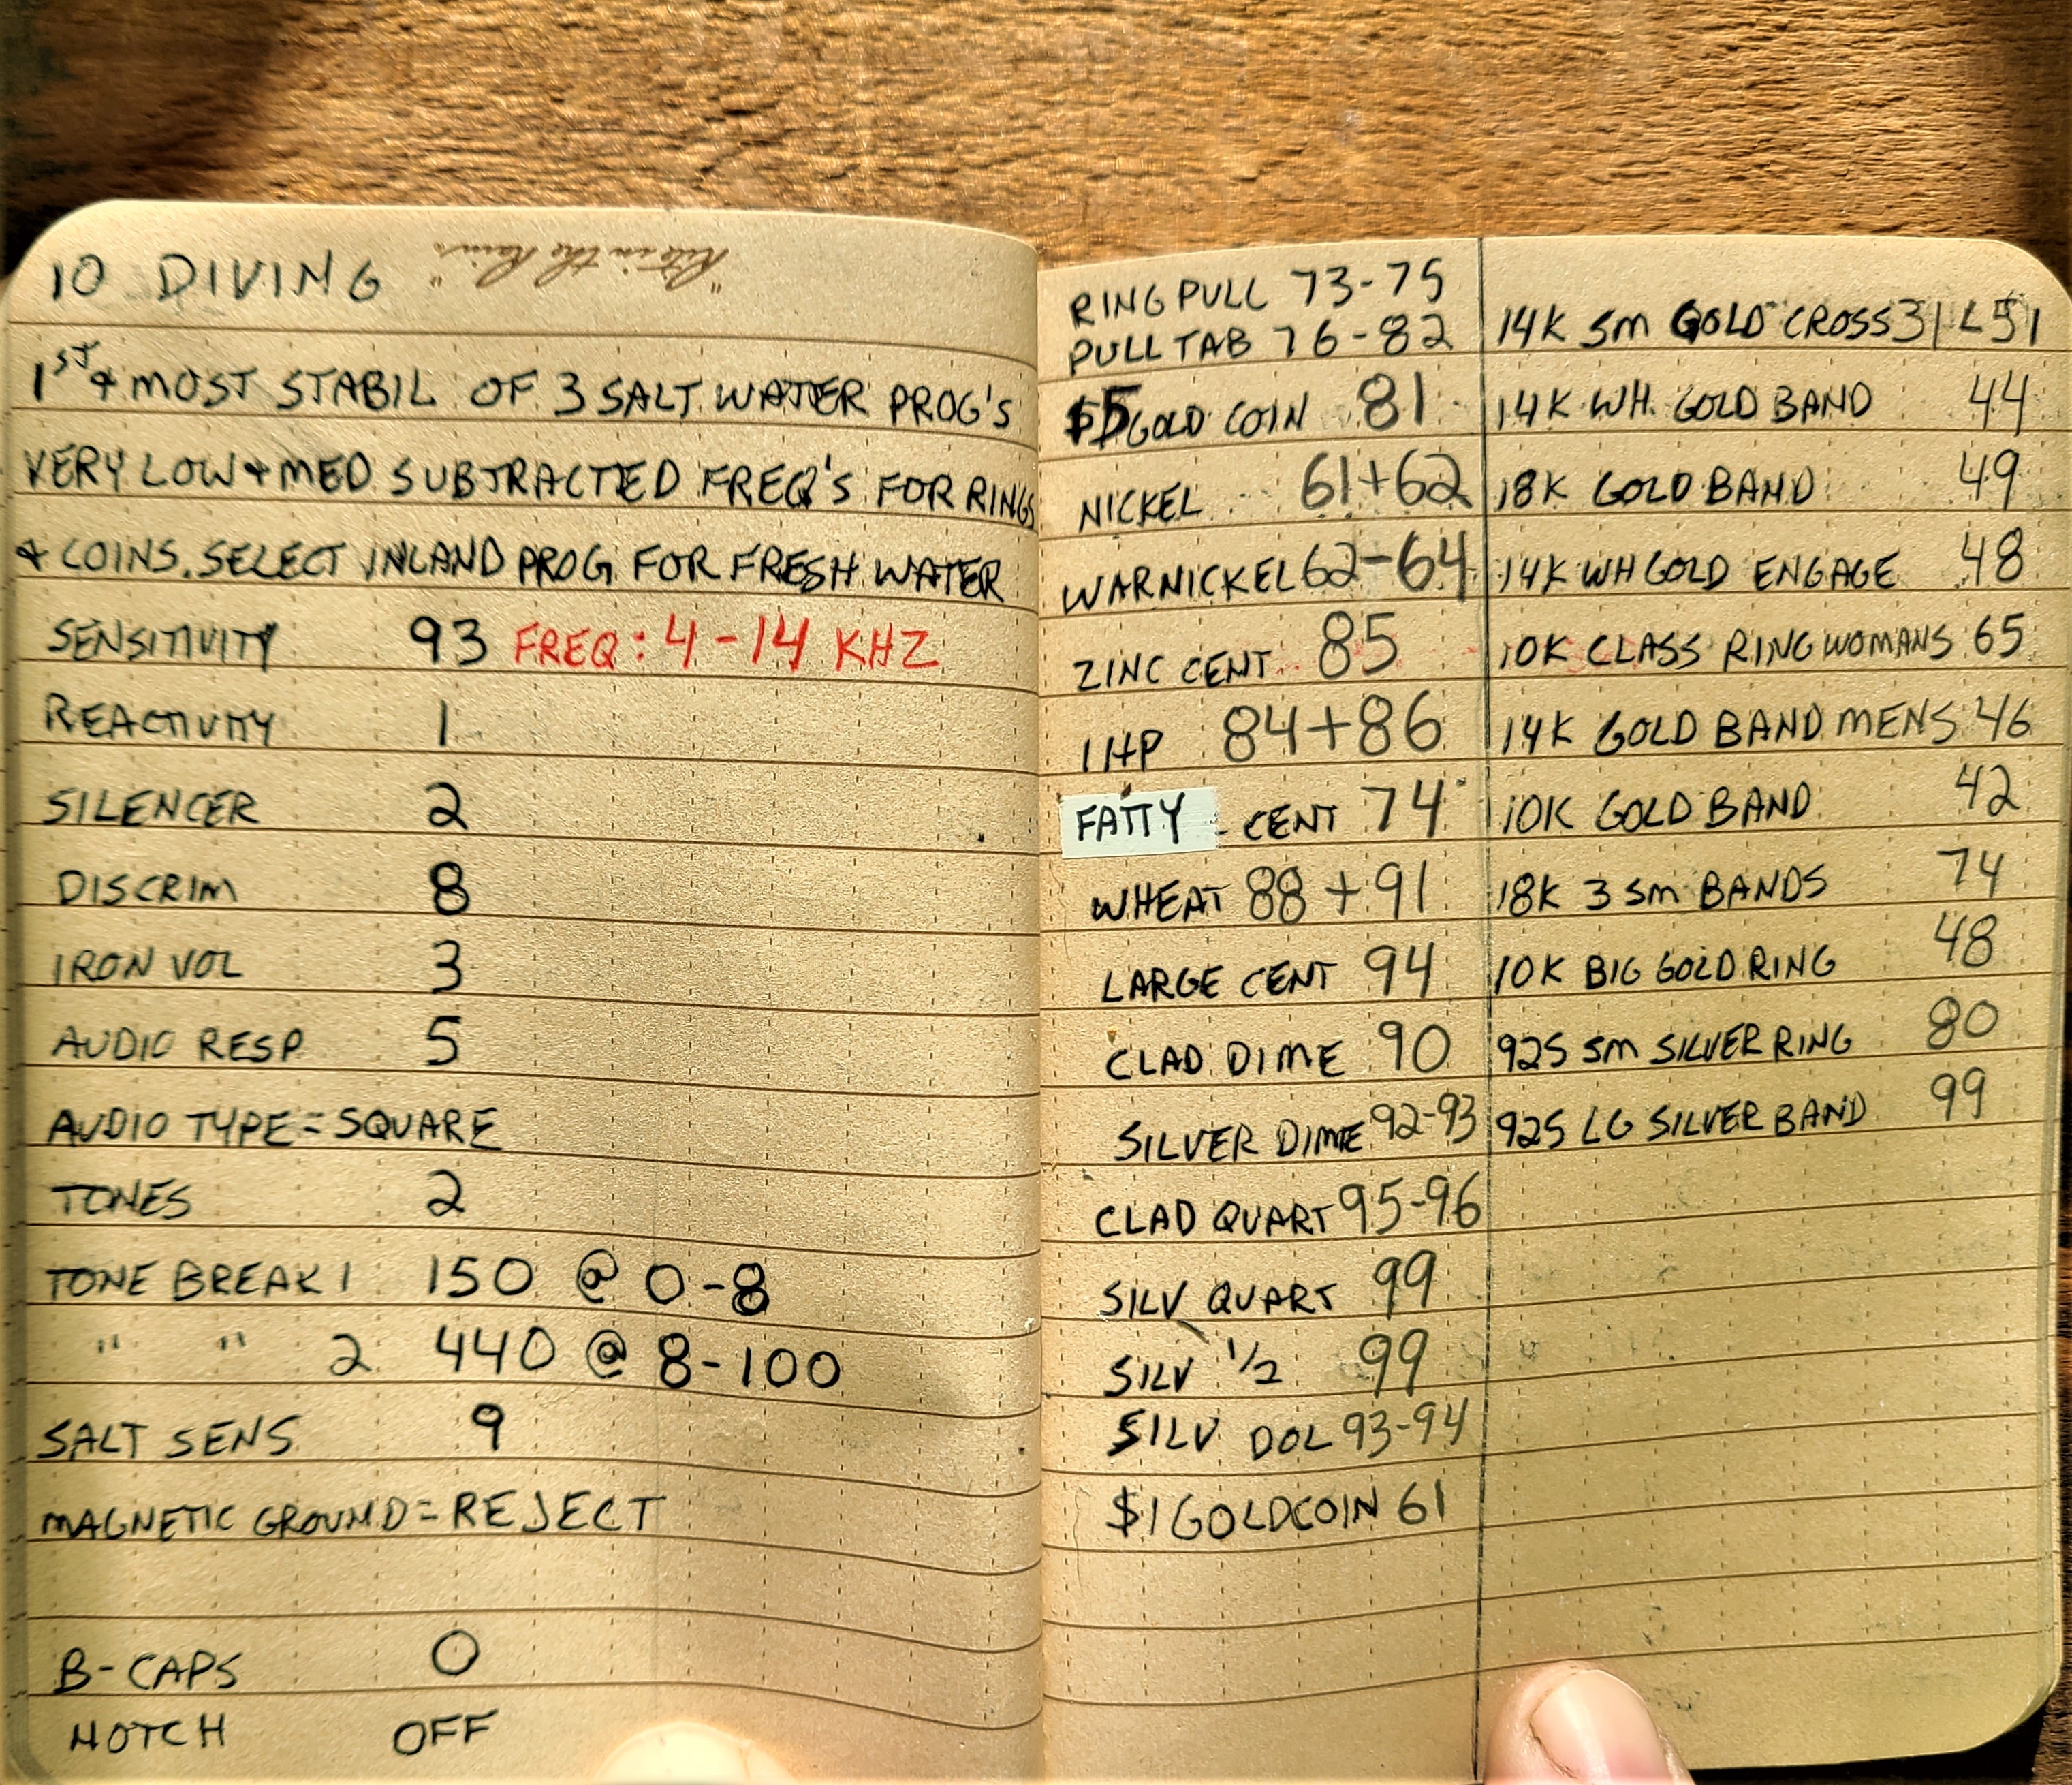 10 DIVING
"Rite in the Rain"
1ST & MOST STABIL OF 3 SALT WATER PROG'S
VERY LOW & MED SUBTRACTED FREQ'S FOR RINGS
& COINS. SELECT INLAND PROG FOR FRESH WATER
SENSITIVITY 93 FREQ: 4-14 KHZ
REACTIVITY 1
SILENCER 2
DISCRIM 8
IRON VOL 3
AUDIO RESP 5
AUDIO TYPE = SQUARE
TONES 2
TONE BREAK 1 150 @ 0-8
" " 2 440 @ 8-100
SALT SENS 9
MAGNETIC GROUND = REJECT
B-CAPS 0
NOTCH OFF
RING PULL 73-75
PULL TAB 76-82
$5 GOLD COIN 81
NICKEL 61+62
WARNICKEL 62-64
ZINC CENT 85
IHP 84+86
FATTY CENT 74
WHEAT 88+91
LARGE CENT 94
CLAD DIME 90
SILVER DIME 92-93
CLAD QUART 95-96
SILV QUART 99
SILV 1/2 99
SILV DOL 93-94
$1 GOLD COIN 61
14K SM GOLD CROSS 31 < 51
14K WH. GOLD BAND 44
18K GOLD BAND 49
14K WH GOLD ENGAGE 48
10K CLASS RING WOMANS 65
14K GOLD BAND MENS 46
10K GOLD BAND 42
18K 3 SM BANDS 74
10K BIG GOLD RING 48
925 SM SILVER RING 80
925 LG SILVER BAND 99